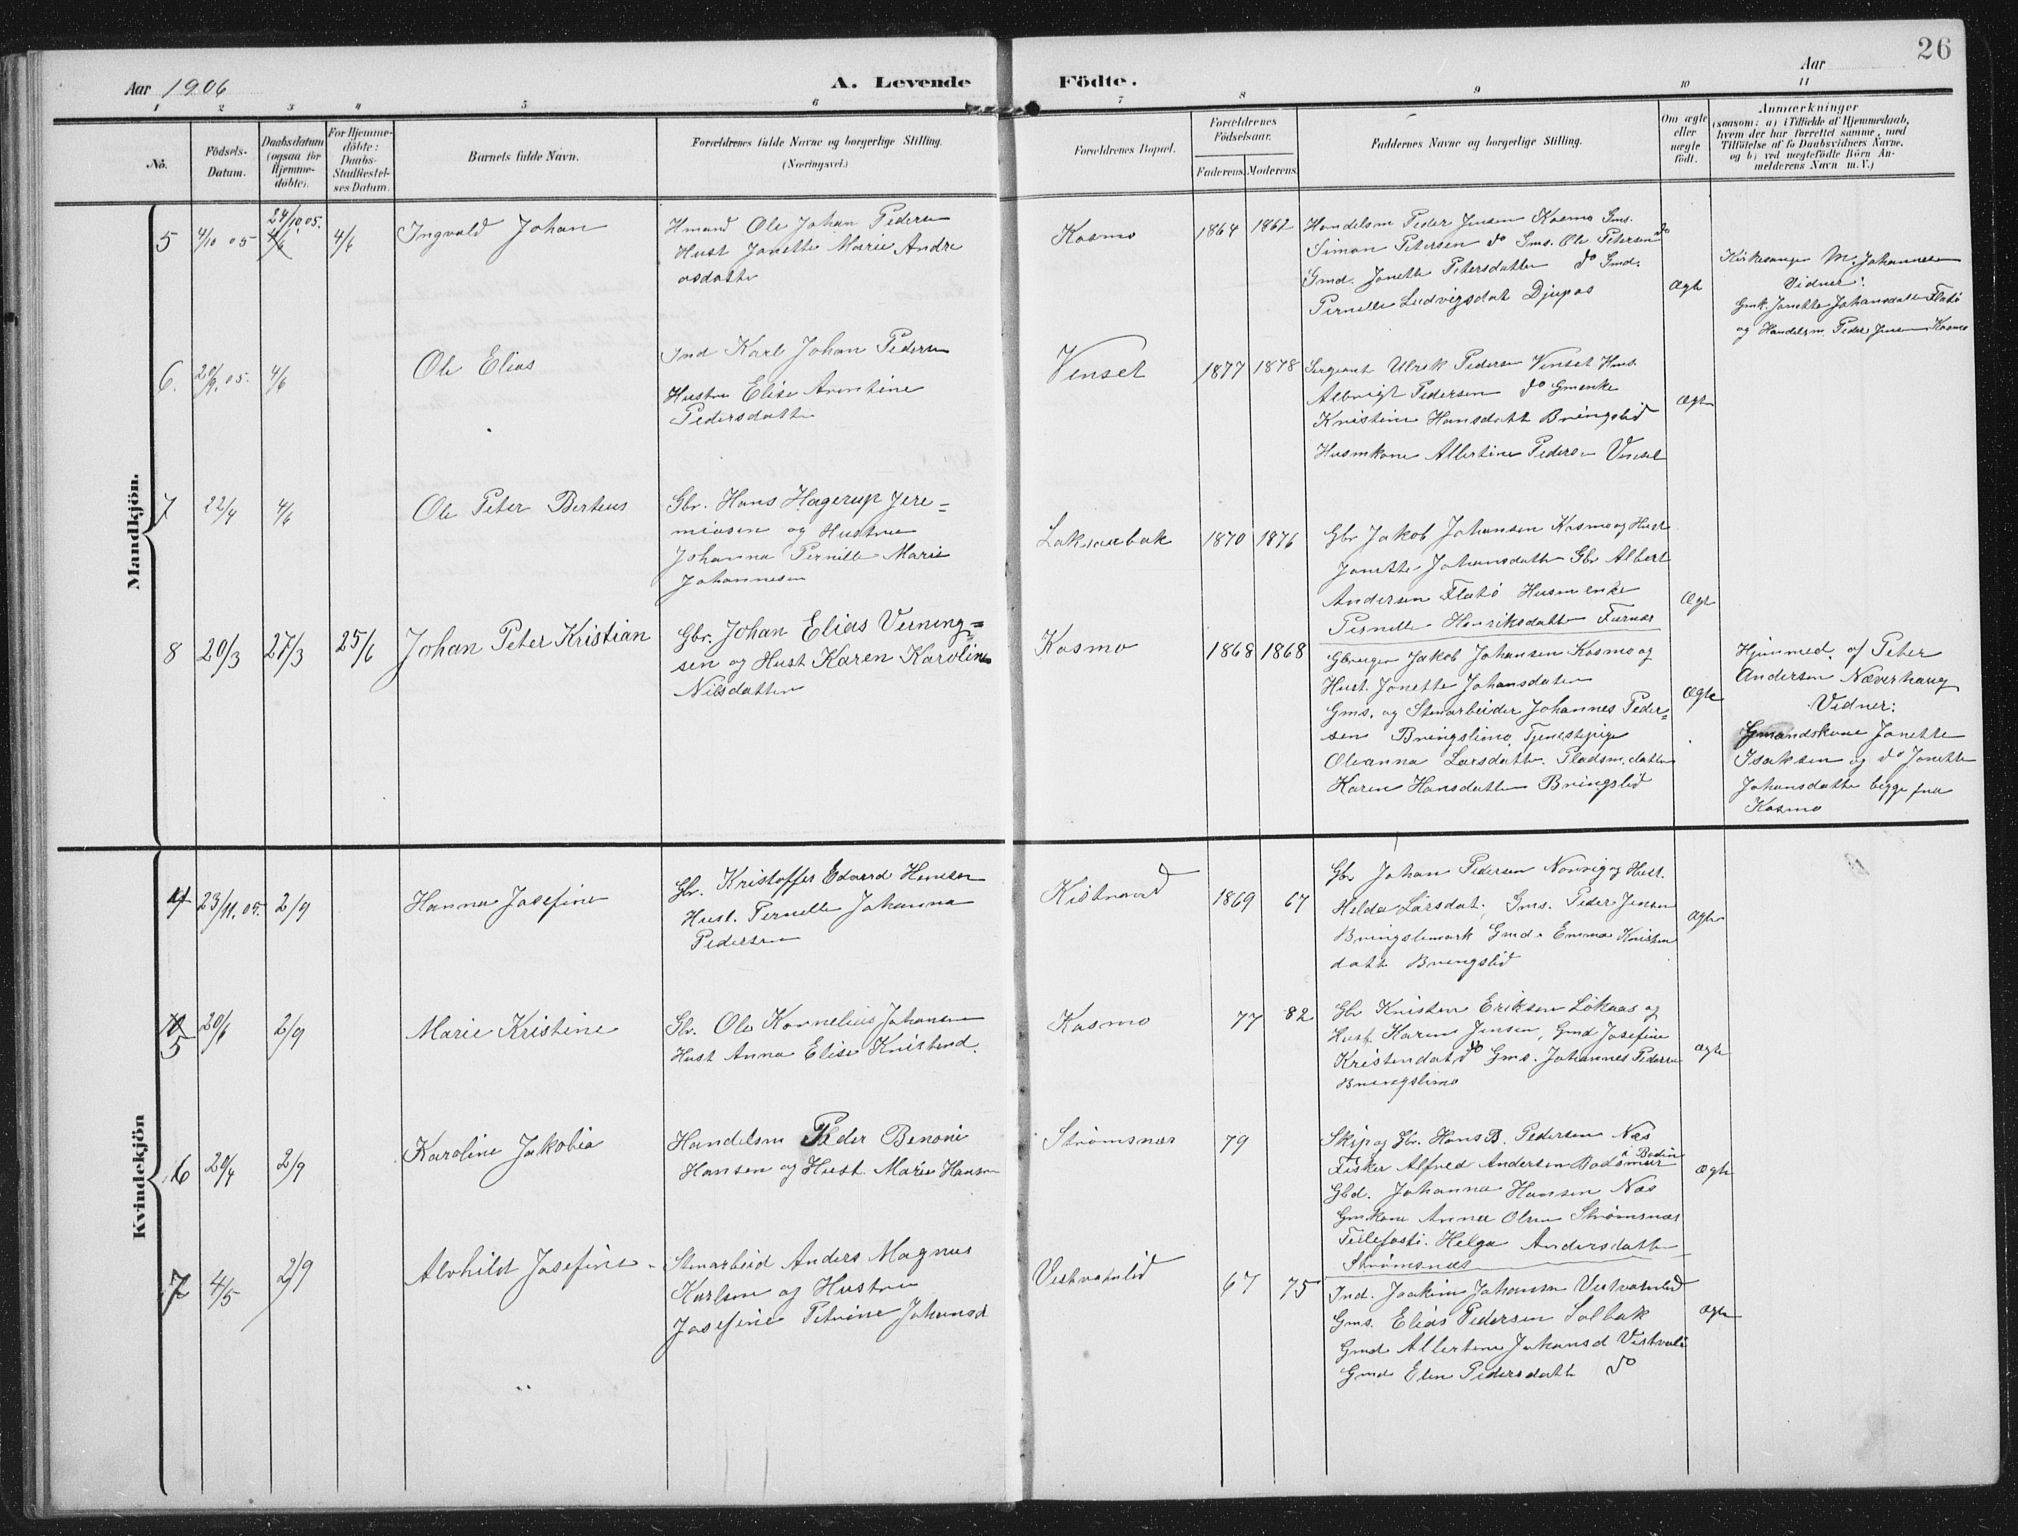 26
Aar 1906
A. Levende Födte.
Aar
1 2 3 4 5 6 7 8 9 10 11
No.
Födsels-
Datum.
Daabsdatum
(ogsaa for
Hjemme-
döbte).
For Hjemme-
döbte:
Daabs-
Stadfæstel-
ses Datum.
Barnets fulde Navn.
Forældrenes fulde Navne og borgerlige Stilling.
(Næringsvei.)
Forældrenes Bopæl.
Forældrenes
Födselsaar.
Faderens. Moderens.
Faddernes Navne og borgerlige Stilling.
Om ægte
eller
uægte
födt.
Anmærkninger
(saasom: a) i Tilfælde af Hjemmedaab,
hvem der har forrettet samme, med
Tilföielse af to Daabsvidners Navne,
og b) ved uægtefödte Börn An-
melderens Navn m. V.)
Mandkjön.
5
4/10 05
24/10 05.
4/6
4/6
Ingvald Johan
Hmand Ole Johan Pedersen
Hust Jonette Marie Andre
asdatte
Kosmo
1864 1862
Handelsm Peder Jensen Kosmo Gms.
Simon Petersen do Gms. Ole Petersen do
Gmd. Jonette Petersdatter do Gmd.
Pernille Ludvigsdat Djupos
Ægte
Kirkesanger M. Johannesen
Vidner:
Gmk. Jonette Johansdatte Flatö
og Handelsm. Peder Jensen Kosmo
6.
20/9. 05.
4/6
Ole Elias
Ind Karl Johan Pedersen
Hustru Elise Arntine
Pedersdatte
Venset
1877 1878
Sergeant Ulrik Pedersen Venset Hus.
Albrigt Pedersen do Gmenke
Kristine Hansdatt Bringslid
Husmkone Albertine Pedersen Venset
Ægte
7
22/4
4/6
Ole Peter Berteus
Gbr. Hans Hagerup Jere=
miasen og Hustru
Johanna Pernille Marie
Johannesen
Laksaubak
1870 1876
Gbr Jakob Johansen Kosmo og Hust
Jonette Johansdatte Gbr Albert
Andersen Flatö Husmenke
Pernille Henriksdatte Furnæs
Ægte
8
20/3
27/3
25/6
Johan Peter Kristian
Gbr. Johan Elias Verning=
sen og Hust Karen Karoline
Nilsdatter
Kosmo
1868 1868
Gbruger Jakob Johansen Kosmo og
Hust. Jonette Johansdatter
Gms. og Stenarbeider Johannes Peder=
sen Bringslimo, Tjenestepige
Oleanna Larsdatte. Pladsm. datter
Karen Hansdatter Bringslid
Ægte
Hjemmed. af Peter
Andersen Næverhaug
Vidner:
Gmandskone Jonette
Isaksen og do Jonette
Johansdatte begge fra
Kosmo
Kvindekjön
4
23/11. 05.
2/9
Hanna Josefine
Gbr. Kristoffer Edvard Hansen
Hust. Pernille Johanna
Pedersen
Kistrand
1869 67
Gbr Johan Pedersen Norvig og Hust.
Helda Larsdat, Gms. Peder Jensen
Bringslimark Gmd. Emma Kristen
datt Bringslid
Ægte
5
20/6
2/9
Marie Kristine
Gbr. Ole Kornelius Johansen
Hust Anna Elise Kristend.
Kosmo
77 82
Gbr Kristen Eriksen Lökaas og
Hust Karen Jensen, Gmd Josefine
Kristendat do Gms. Johannes Pedersen
Bringslimo
Ægte
6
20/4
2/9
Karoline Jakobia
Handelsm Peder Benoni
Hansen og Hust Marie Hansen
Strömsnæs
79
Skip og Gbr. Hans B. Pedersen Næs
Fisker Alfred Andersen Badsmur i Bodin
Gbd. Johanna Hansen Næs
Gmkone Anna Olsen Strömsnæs
Telefosti. Helga Andersdatte
Strømsnæs
Ægte
7
4/5
2/9
Alvhild Josefine
Stenarbeid Anders Magnus
Karlsen og Hustru
Josefine Petrine Johansd
Vestvatnlid
67 75
Ind. Joakim Johansen Vestvatnlid
Gms. Elias Pedersen Solbak
Gmd Albertine Johansd Vestvatli
Gmd Elen Pedersdatt do
Ægte